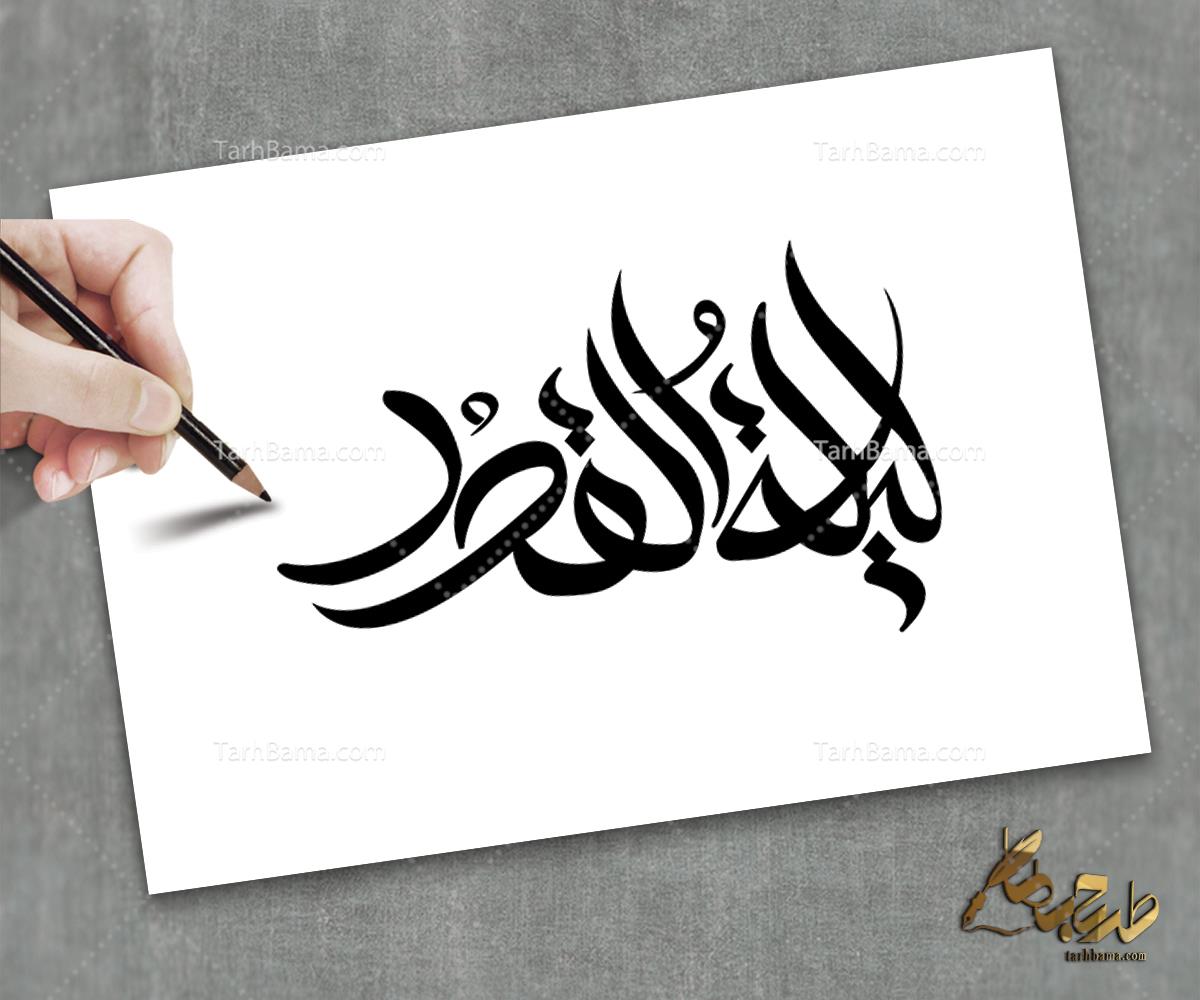 TarhBama.com TarhBama.com
ليلة القدر
TarhBama.com TarhBama.com
TarhBama.com TarhBama.com
طرح با ما
tarhbama.com